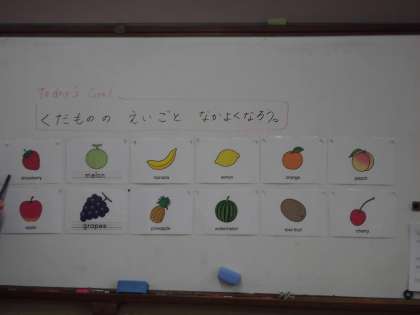 Today's Goal
くだものの えいごと なかよくなろう。
strawberry
melon
banana
lemon
orange
peach
apple
grapes
pineapple
watermelon
kiwi fruit
cherry